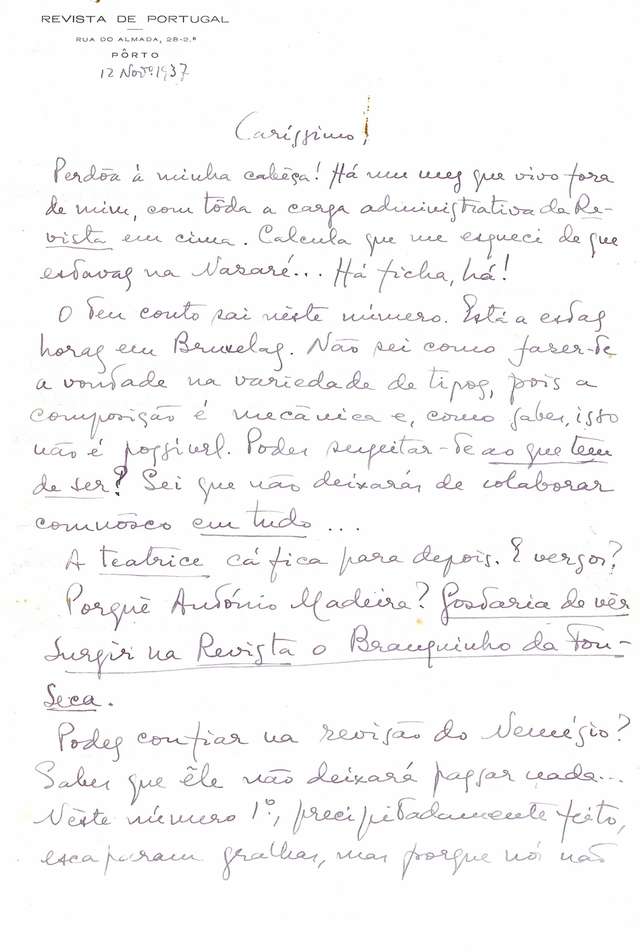 REVISTA DE PORTUGAL
RUA DO ALMADA, 28-2.º
PÔRTO
12 Novº. 1937
Caríssimo!
Perdôa à minha cabêça! Há um mez que vivo fora
de mim, com tôda a carga administrativa da Re-
vista em cima. Calcula que me esqueci de que
estavas na Nazaré... Há ficha, há!
O teu conto sai nêste número. Está a estas
horas em Bruxelas. Não sei como fazer-te
a vontade na variedade de tipos, pois a
composição é mecânica e, como sabes, isso
não é possível. Podes sugeitar-te ao que tem
de ser? Sei que não deixarás de colaborar
comnôsco em tudo...
A teatrice cá fica para depois. E versos?
Porquê António Madeira? Gostaria de vêr
surgir na Revista o Branquinho da Fon-
seca.
Podes confiar na revisão do Nemésio?
Sabes que êle não deixará passar nada...
Nêste número 1º, precipitadamente feito,
escaparam gralhas, mas porque nós não